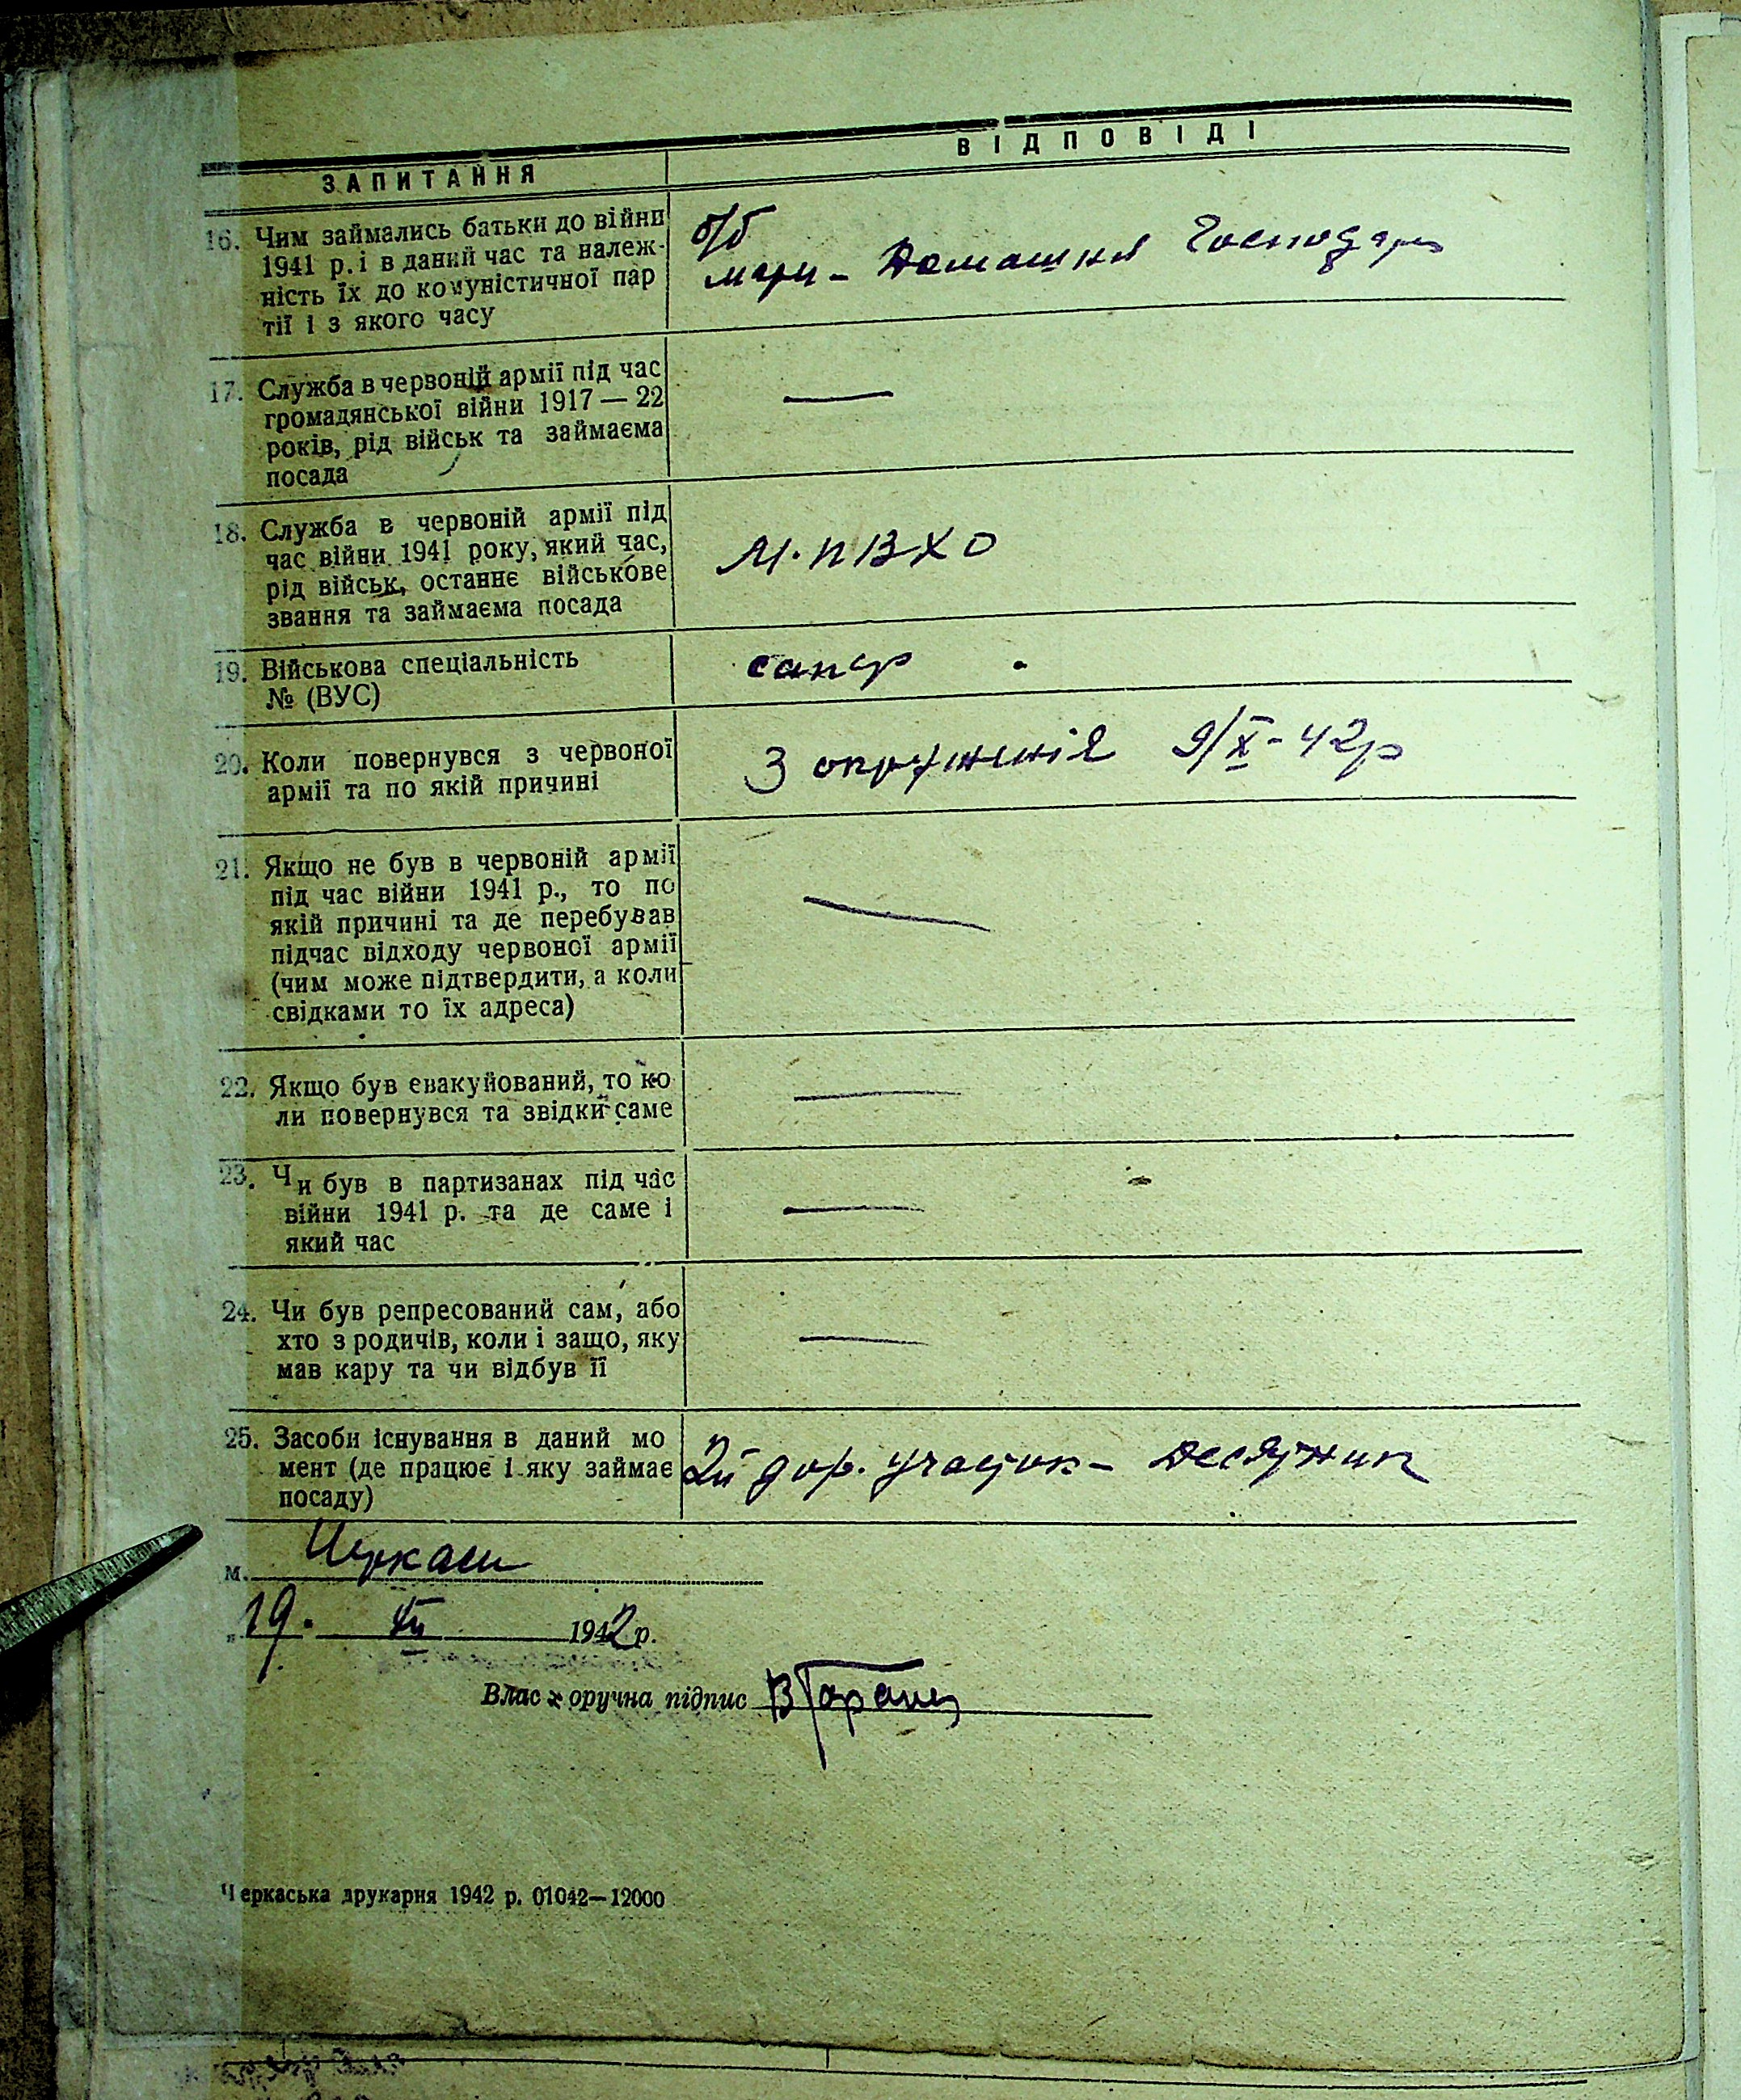 ЗАПИТАННЯ
ВІДПОВІДІ
16. Чим займались батьки до війни
1941 р. і в даний час та належ-
ність їх до комуністичної пар
тії і з якого часу
б/б
мати – Домашня Господар
17. Служба в червоній армії під час
громадянської війни 1917 — 22
років, рід військ та займаєма
посада
—
18. Служба в червоній армії під
час війни 1941 року, який час,
рід військ, останнє військове
звання та займаєма посада
М. П В Х О
19. Військова спеціальність
№ (ВУС)
сапер
20. Коли повернувся з червоної
армії та по якій причині
З окруженія 9/X - 42р
21. Якщо не був в червоній армії
під час війни 1941 р., то по
якій причині та де перебував
підчас відходу червоної армії
(чим може підтвердити, а коли
свідками то їх адреса)
—
22. Якщо був евакуйований, то ко-
ли повернувся та звідки саме
—
23. Чи був в партизанах під час
війни 1941 р. та де саме і
який час
—
24. Чи був репресований сам, або
хто з родичів, коли і защо, яку
мав кару та чи відбув її
—
25. Засоби існування в даний мо
мент (де працює і яку займає
посаду)
2й дор. участок – десятник
м. Черкаси
„19. 1942 р.
Влас оручна підпис
Черкаська друкарня 1942 р. 01042—12000